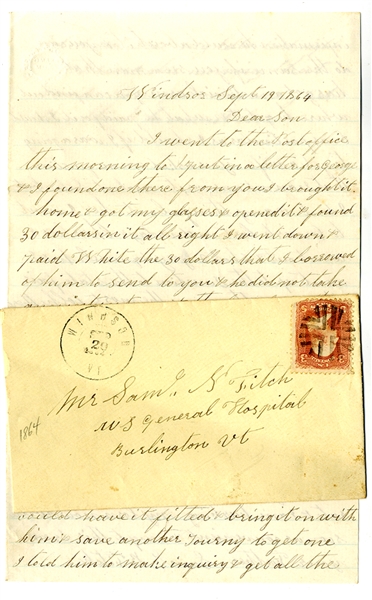 Windsor Sept 19 1864
Dear Son
I went to the Post office
this morning to put in a letter for
& I found one there from you I brought it
home & got my glasses & opened it & found
30 dollars in it all right I went down &
paid White the 30 dollars that I borrowed
of him to send to you & he did not take
WINDSOR
SEP
20
VT
Mr Saml N Fitch
US General Hospital
Burlington Vt
1864
3
3
would have it fitted & bring it on with
him & save another Journy to get one
I told him to make inquiry & get all the